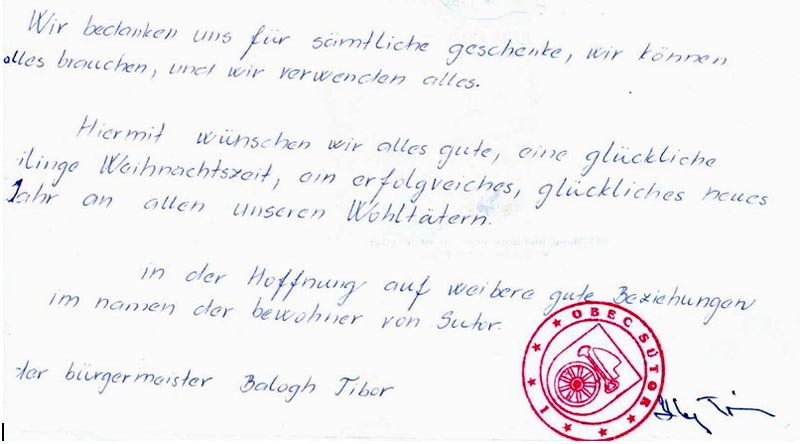 Wir bedanken uns für sämtliche geschenke, wir können
alles brauchen, und wir verwenden alles.
Hiermit wünschen wir alles gute, eine glückliche
ilinge Weihnachtszeit, ein erfolgreiches, glückliches neues
Jahr an allen unseren Wohltätern.
in der Hoffnung auf weitere gute Beziehungen
im namen der bewohner von Sutor.
der bürgermeister Balogh Tibor
OBEC SÚTOR
1